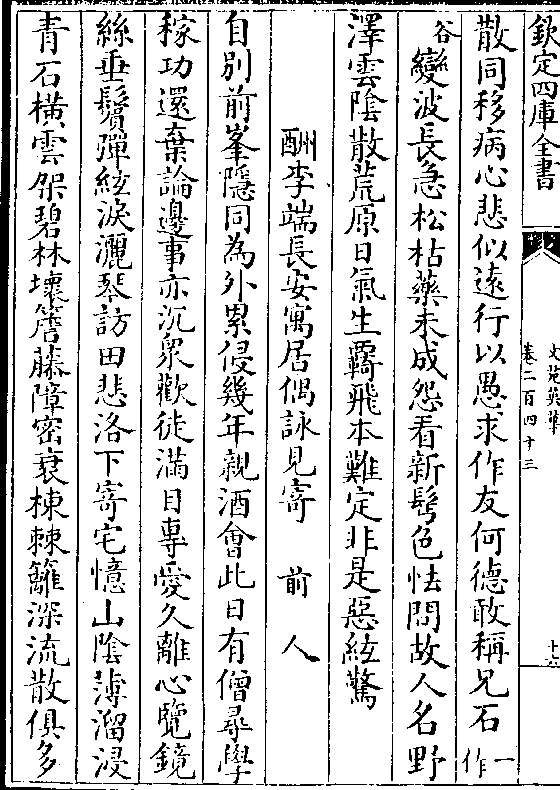 欽定四庫全書
文苑英華
卷二百四十三
十六
散同移病心悲似遠行以愚求作友何德敢稱兄石一作
谷變波長急松枯藥未成怨看新髩色怯問故人名野
澤雲陰散荒原日氣生覊飛本難定非是惡絃驚
酬李端長安寓居偶詠見寄 前人
自別前峯隱同為外累侵幾年親酒會此日有僧尋學
稼功還棄論邊事亦沉衆歡徒滿目專愛久離心覽鏡
絲垂鬢彈絃淚灑琴訪田悲洛下寄宅憶山陰薄溜浸
青石橫雲架碧林壞簷藤障密衰棟棘籬深流散俱多